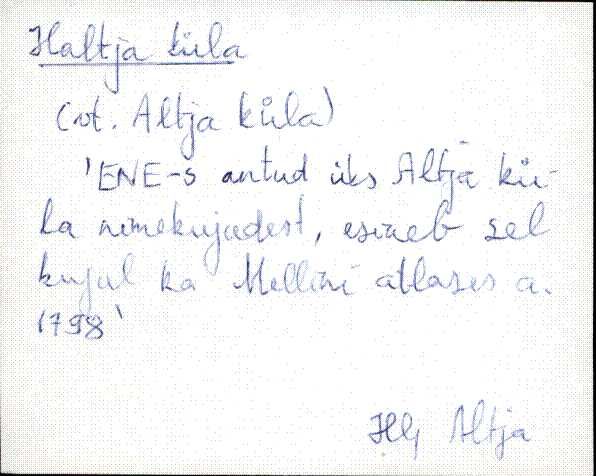 Haltja küla
(vt. Altja küla)
'ENE-s antud üks Altja kü-
la nimekujudest, esineb sel
kujul ka Mellini atlases a.
1798'
Hlj Altja